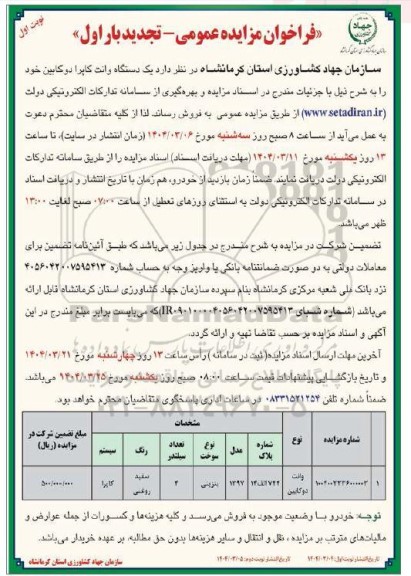 نوبت اول
«فراخوان مزایده عمومی - تجدید بار اول»
سازمان جهاد کشاورزی استان کرمانشاه در نظر دارد یک دستگاه وانت کاپرا دوکابین خود
را به شرح ذیل با جزئیات مندرج در اسناد مزایده و بهره‌گیری از سامانه تدارکات الکترونیکی دولت
(www.setadiran.ir) از طریق مزایده عمومی به فروش رساند. لذا از کلیه متقاضیان محترم دعوت
به عمل می‌آید از ساعت ۸ صبح روز سه‌شنبه مورخ ۱۴۰۴/۰۳/۰۶ (زمان انتشار در سایت)، تا ساعت
۱۳ روز یکشنبه مورخ ۱۴۰۴/۰۳/۱۱ (مهلت دریافت اسناد) اسناد مزایده را از طریق سامانه تدارکات
الکترونیکی دولت دریافت نمایند. ضمناً زمان بازدید از خودرو، هم زمان با تاریخ انتشار و دریافت اسناد
در سامانه تدارکات الکترونیکی دولت به استثنای روزهای تعطیل از ساعت ۰۷:۰۰ صبح لغایت ۱۳:۰۰
ظهر می‌باشد.
تضمین شرکت در مزایده به شرح مندرج در جدول زیر می‌باشد که طبق آئین‌نامه تضمین برای
معاملات دولتی به دو صورت ضمانتنامه بانکی یا واریز وجه به حساب شماره ۴۰۵۶۰۴۲۰۰۷۵۹۵۴۱۳
نزد بانک ملی شعبه مرکزی کرمانشاه بنام سپرده سازمان جهاد کشاورزی استان کرمانشاه قابل ارائه
می‌باشد (شماره شبای IR۰۹۰۱۰۰۰۰۴۰۵۶۰۴۲۰۰۷۵۹۵۴۱۳) که می‌بایست برابر مبلغ مندرج در این
آگهی و اسناد مزایده بر حسب تقاضا تهیه و ارائه گردد.
آخرین مهلت ارسال اسناد مزایده (ثبت در سامانه) راس ساعت ۱۳ روز چهارشنبه مورخ ۱۴۰۴/۰۳/۲۱
و تاریخ بازگشایی پیشنهادات قیمت ساعت ۰۸:۰۰ صبح روز یکشنبه مورخ ۱۴۰۴/۰۳/۲۵ می‌باشد.
ضمناً شماره تلفن ۰۸۳۳۱۵۲۱۲۵۴ در ساعات اداری پاسخگوی متقاضیان محترم خواهد بود.
شماره مزایده نوع مشخصات مبلغ تضمین شرکت در مزایده (ریال)
شماره پلاک مدل نوع سوخت تعداد سیلندر رنگ سیستم
۱ وانت دوکابین ۱۳۹۷ بنزینی ۴ سفید روغنی کاپرا ۵۰۰/۰۰۰/۰۰۰
توجه: خودرو با وضعیت موجود به فروش می‌رسد و کلیه هزینه‌ها و کسورات از جمله عوارض و
مالیات‌های مترتب بر مزایده، نقل و انتقال و سایر هزینه‌ها بدون حق مطالبه، بر عهده خریدار می‌باشد.
سازمان جهاد کشاورزی استان کرمانشاه